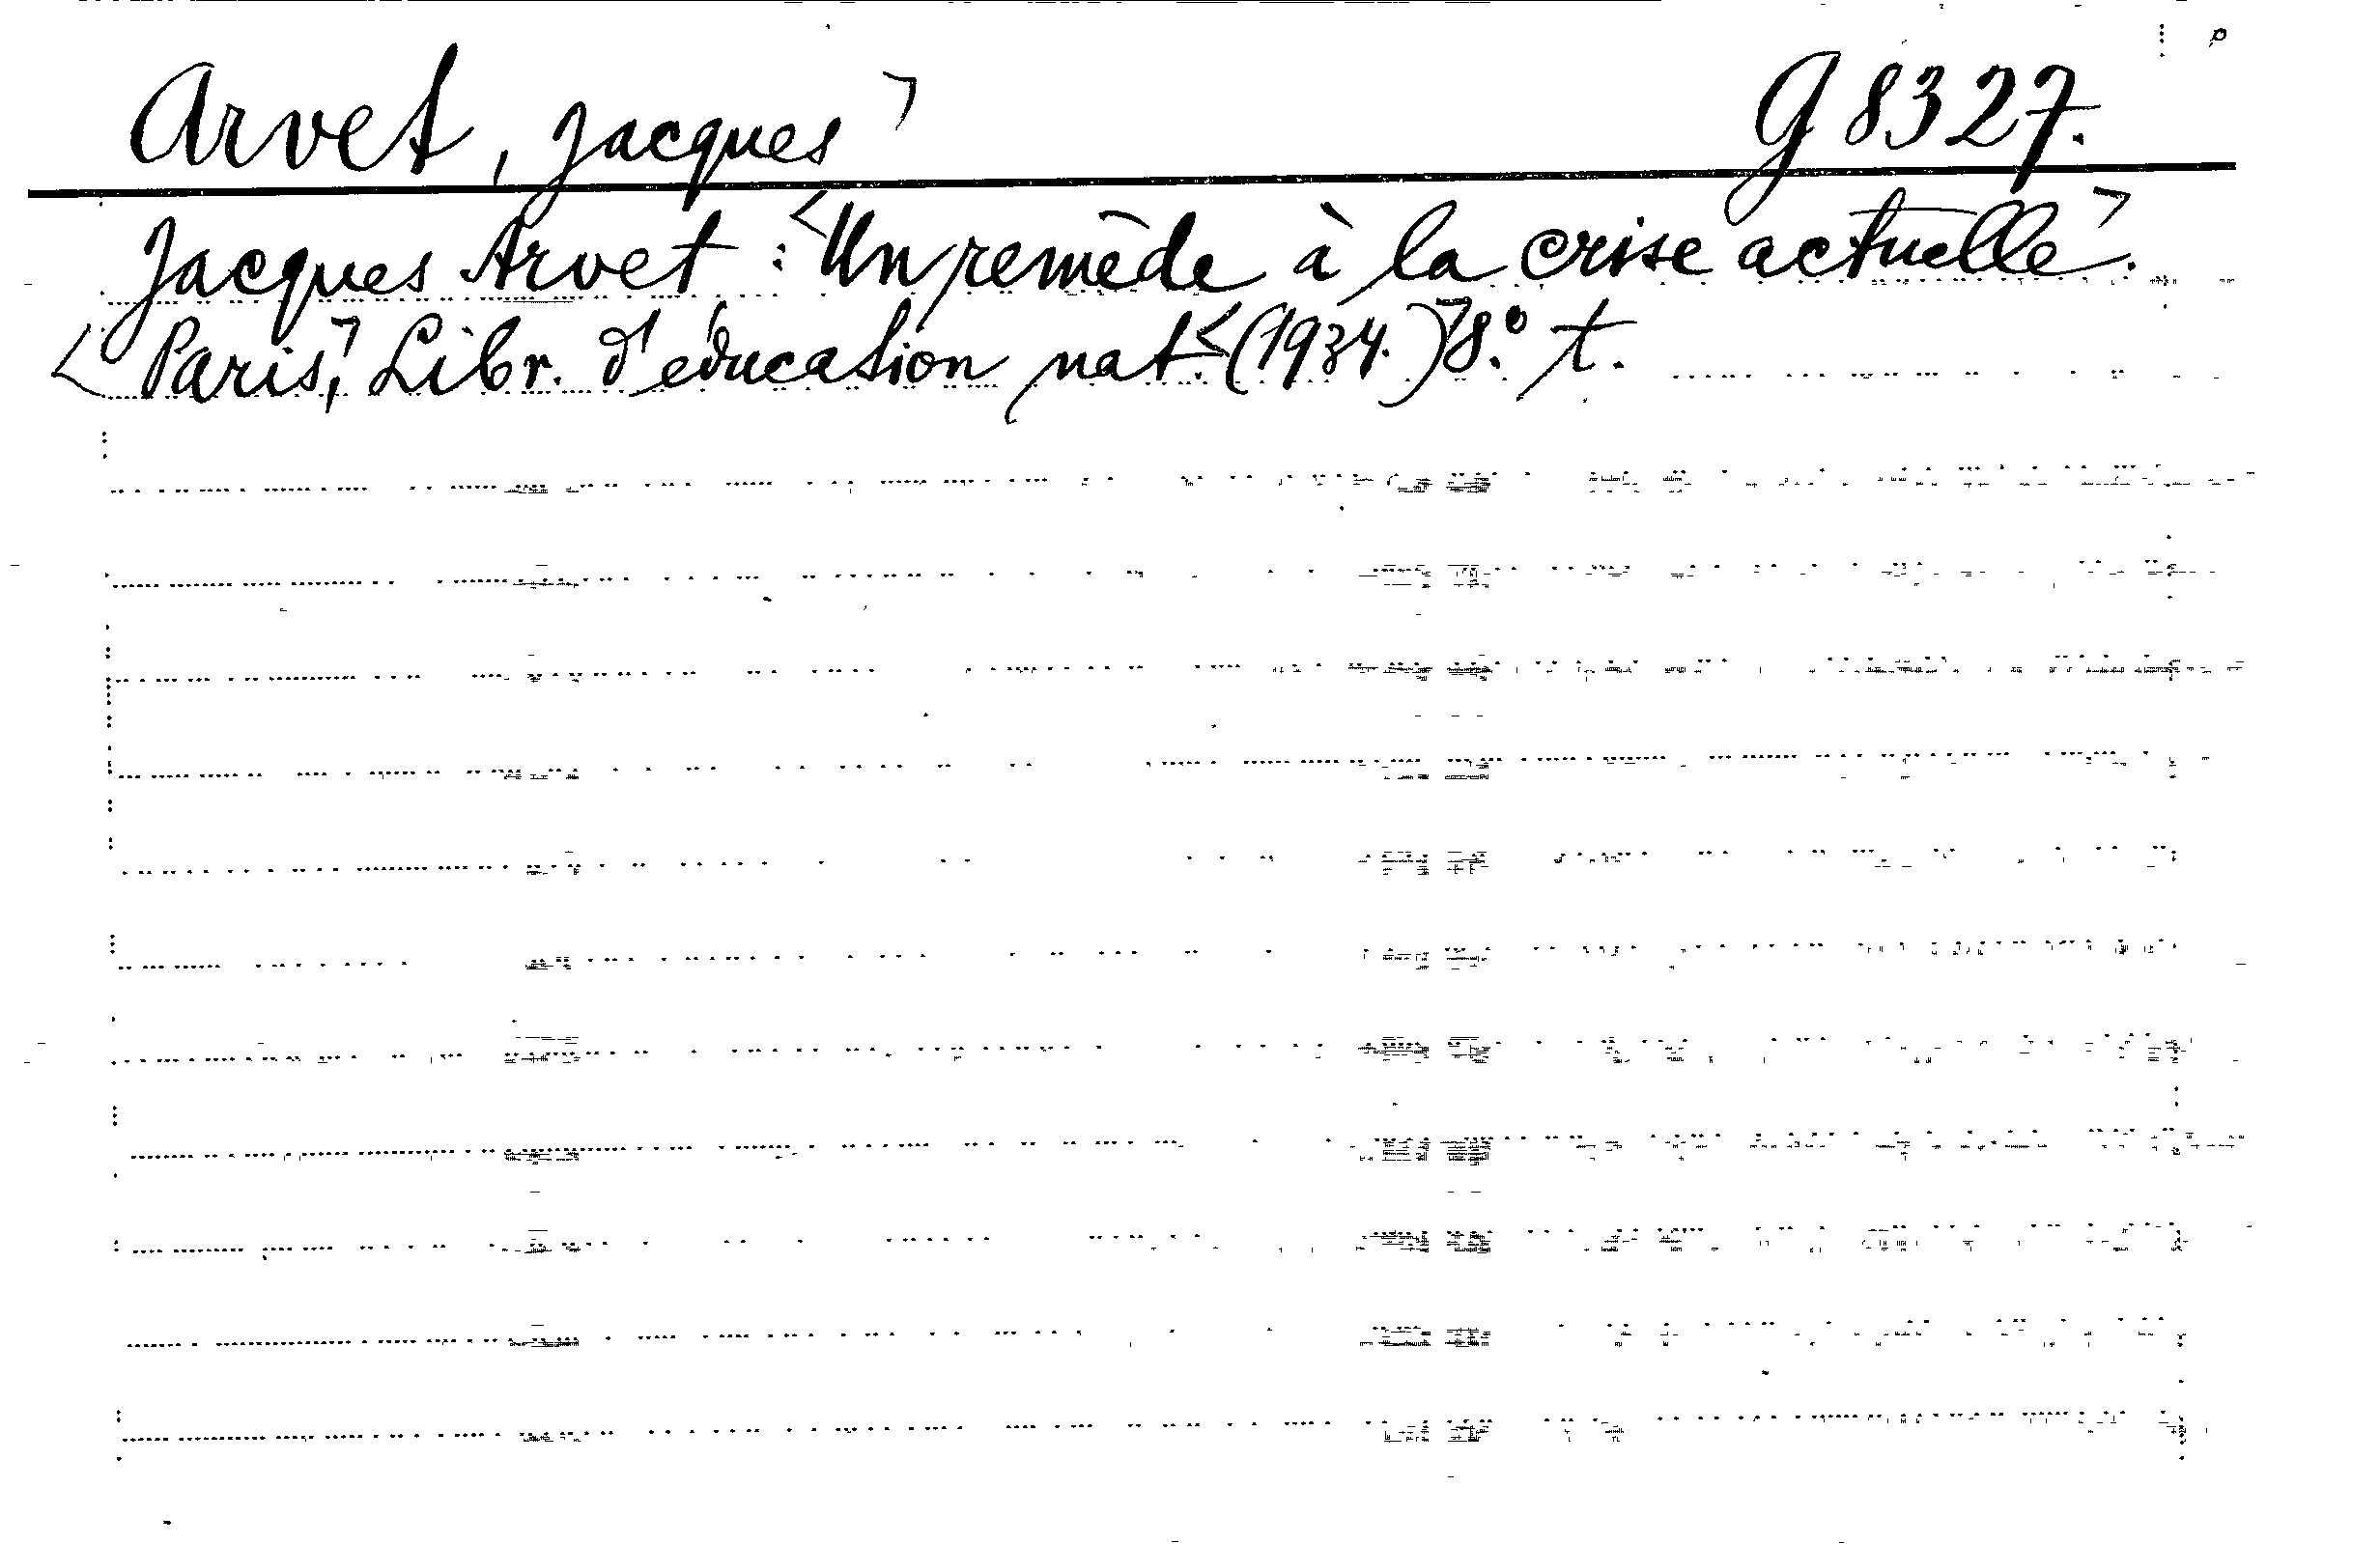 Arvet, Jacques> G 8327.
Jacques Arvet : <Un remède à la crise actuelle>.
<Paris,> Libr. d'éducation nat. <(1934.)> 8.° t.